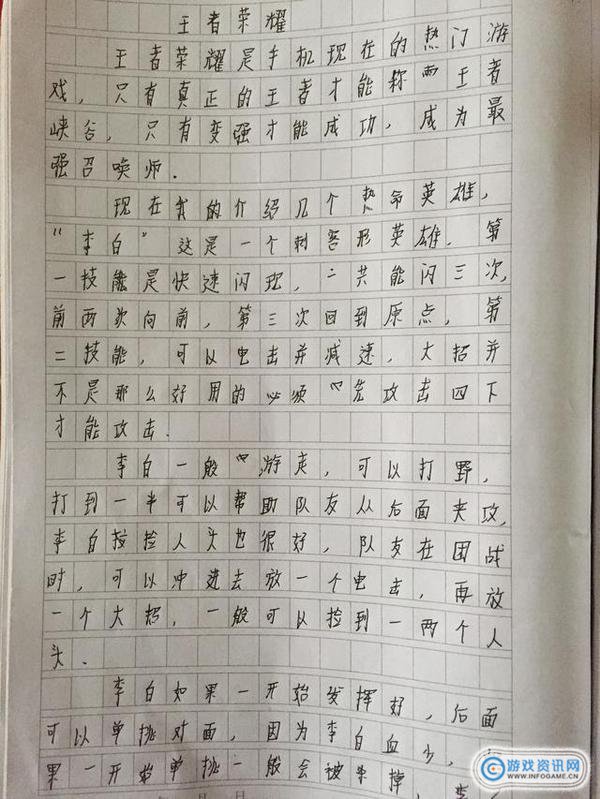 王者荣耀
王者荣耀是手机现在的热门游
戏，只有真正的王者才能称两王者
峡谷，只有变强才能成功，成为最
强召唤师.
现在我的介绍几个热命英雄，
“李白”这是一个刺客形英雄.第
一技能是快速闪现，二共能闪三次，
前两次向前，第三次回到原点，第
二技能，可以电击并减速，大招并
不是那么好用的必须 先攻击四下
才能攻击.
李白一般 游走，可以打野，
打到一半可以帮助队友从后面夹攻，
李白按捡人头也很好，队友在团战
时，可以冲进去放一个电击，再放
一个大招，一般可以捡到一两个人
头.
李白如果一开始发挥好，后面
可以单挑对面，因为李白血少，
果一开始单挑一般会被 掉，
游戏资讯网
WWW.INFOGAME.CN